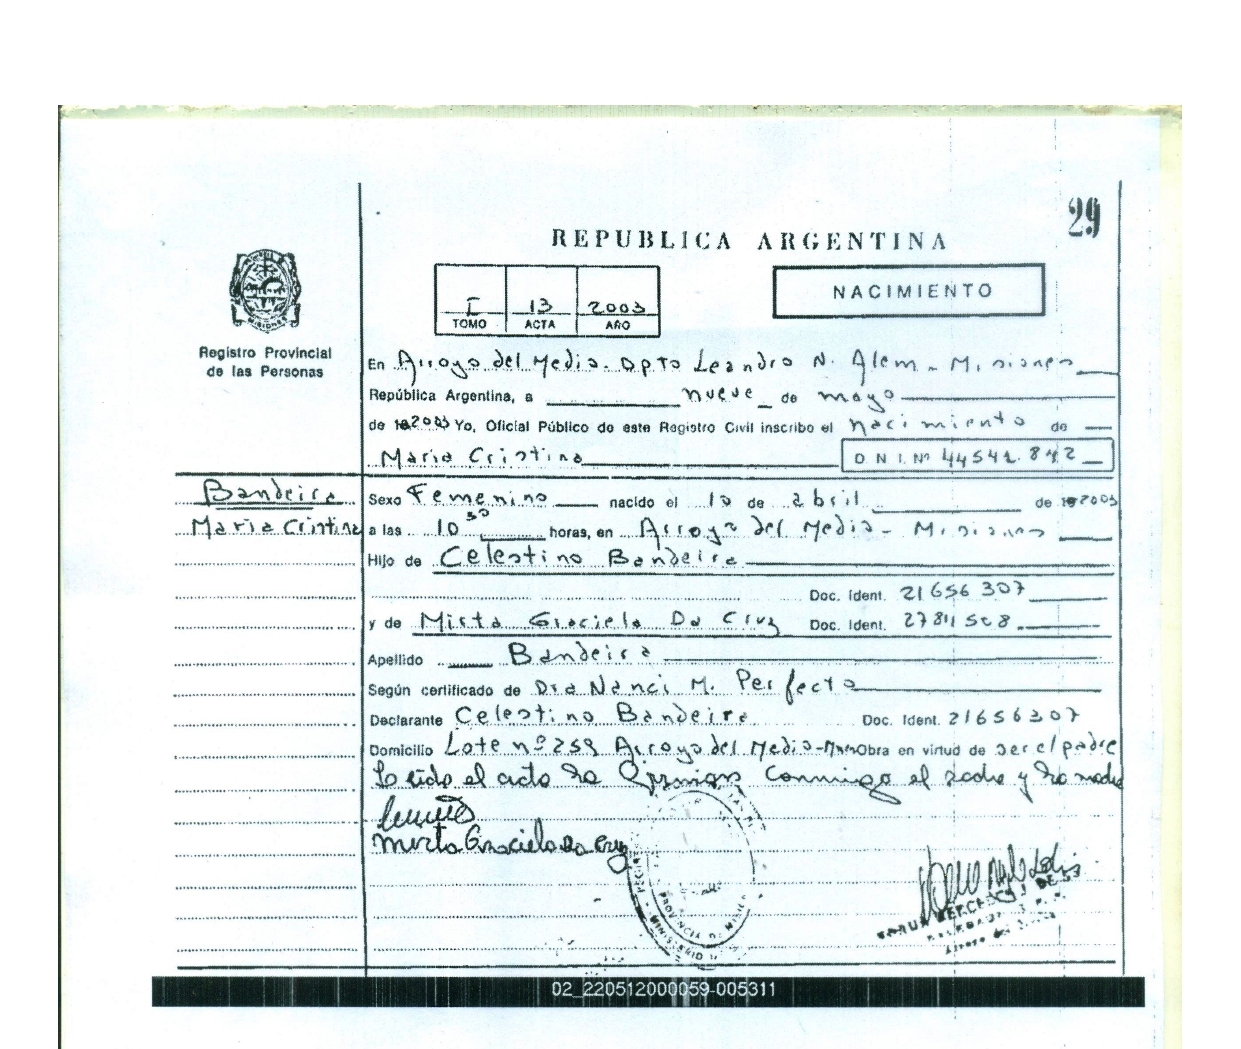 29
REPUBLICA ARGENTINA
I 13 2003
TOMO ACTA AÑO
NACIMIENTO
MISIONES
Registro Provincial
de las Personas
En Arroyo del Medio. Dpto Leandro N. Alem - Misiones
República Argentina, a nueve de mayo
de 2003 Yo, Oficial Público de este Registro Civil inscribo el Nacimiento de
Maria Cristina D N I. Nº 44541.842
Bandeira
Maria Cristina
Sexo Femenino nacido el 10 de abril de 2003
a las 10 30 horas, en Arroyo del Medio - Misiones
Hijo de Celestino Bandeira
Doc. Ident. 21656307
y de Mirta Graciela Da Cruz Doc. Ident. 27811508
Apellido Bandeira
Según certificado de Dra Nanci M. Perfecto
Declarante Celestino Bandeira Doc. Ident. 21656307
Domicilio Lote nº 259 Arroyo del Medio - Mnes Obra en virtud de ser el padre
Leido el acta la firman conmigo el padre y la madre
Mirta Graciela Da Cruz
PROVINCIA DE MISIONES
MINISTERIO
02_220512000059-005311